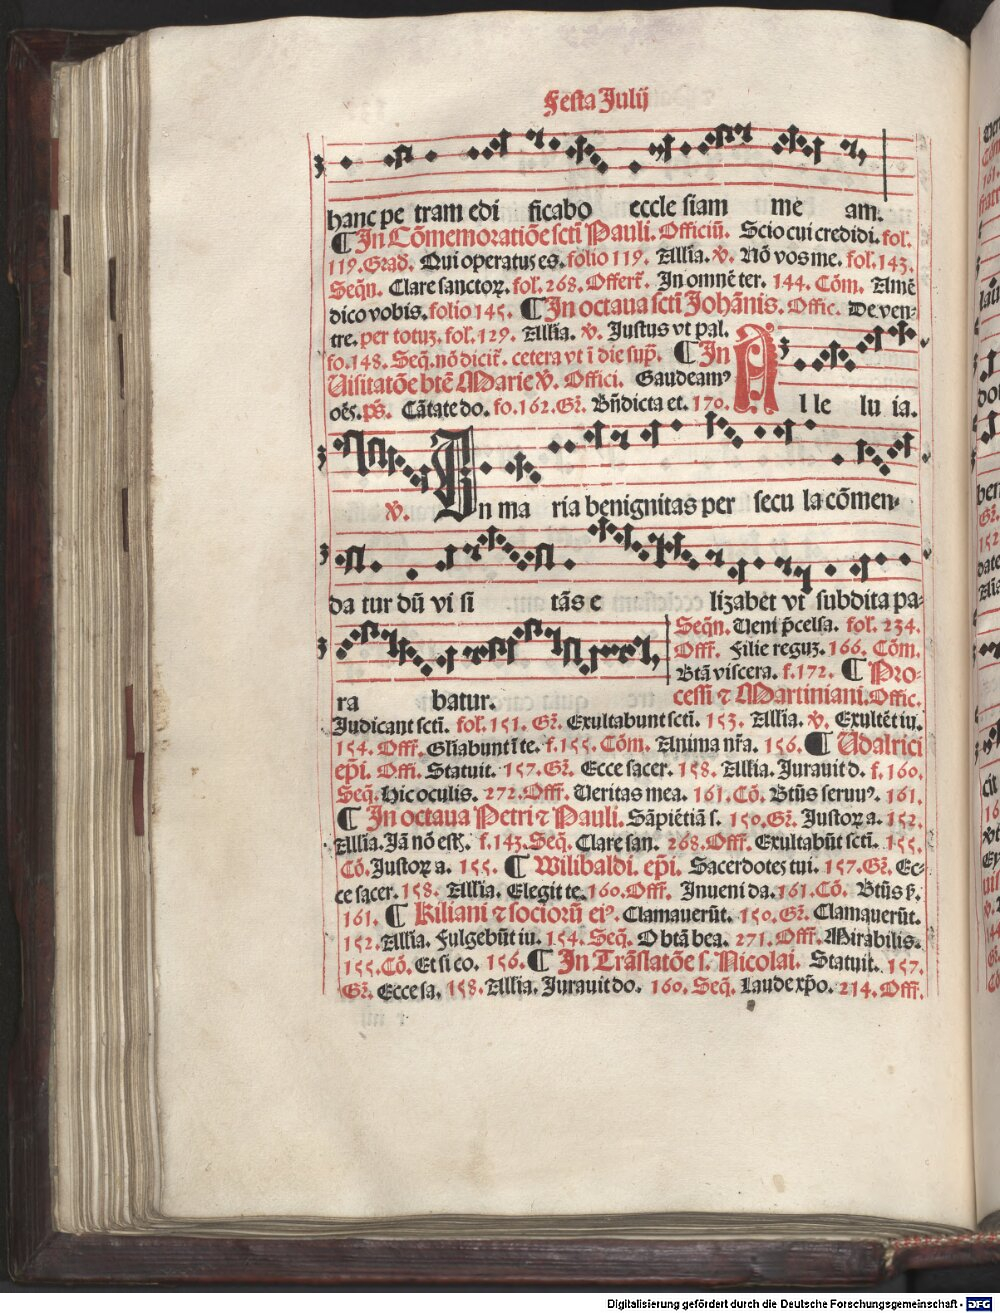 Festa Julij
hanc pe tram edi ficabo eccle siam me am.
¶ In Cōmemoratiōe scti Pauli. Officiū. Scio cui credidi. fol.
119. Grad. Qui operatus es. folio 119. Allīa. v. Nō vos me. fol. 143.
Seqn. Clare sanctoꝝ. fol. 268. Offert. In omnē ter. 144. Cōm. Amē
dico vobis. folio 145. ¶ In octaua scti Johānis. Offic. De ven-
tre. per totuꝫ. fol. 129. Allīa. v. Justus vt pal.
fo. 148. Seq̄. nō dicit̄. cetera vt ī die sup̄. ¶ In
Uisitatōe btē Marie v̄. Offici. Gaudeamꝰ
oēs. ps. Cātate do. fo. 162. Gr̄. Bn̄dicta et. 170. A l le lu ia.
v. In ma ria benignitas per secu la cōmen-
da tur dū vi si tās e lizabet vt subdita pa-
ra batur.
Seqn. Ueni p̄celsa. fol. 234.
Off. Filie reguꝫ. 166. Cōm.
Btā viscera. f. 172. ¶ Pro-
cessi ⁊ Martiniani. Offic.
Judicant scti. fol. 151. Gr̄. Exultabunt scti. 153. Allīa. v. Exultēt iu.
154. Off. Glīabunt ī te. f. 155. Cōm. Anima nr̄a. 156. ¶ Udalrici
ep̄i. Offi. Statuit. 157. Gr̄. Ecce sacer. 158. Allīa. Jurauit d. f. 160.
Seq̄. Hic oculis. 272. Off. Ueritas mea. 161. Cō. Btūs seruuꝰ. 161.
¶ In octaua Petri ⁊ Pauli. Sāpiētiā s. 150. Gr̄. Justoꝝ a. 152.
Allīa. Jā nō estꝭ. f. 143. Seq̄. Clare san. 268. Off. Exultabūt scti. 155.
Cō. Justoꝝ a. 155. ¶ Wilibaldi. ep̄i. Sacerdotes tui. 157. Gr̄. Ec-
ce sacer. 158. Allīa. Elegit te. 160. Off. Inueni da. 161. Cō. Btūs ẜ.
161. ¶ Kiliani ⁊ socioꝛū eiꝰ. Clamauerūt. 150. Gr̄. Clamauerūt.
152. Allīa. Fulgebūt iu. 154. Seq̄. O btā bea. 271. Off. Mirabilis.
155. Cō. Et si co. 156. ¶ In Trāslatōe s. Nicolai. Statuit. 157.
Gr̄. Ecce sa. 158. Allīa. Jurauit do. 160. Seq̄. Laude xp̄o. 214. Off.
Digitalisierung gefördert durch die Deutsche Forschungsgemeinschaft - DFG